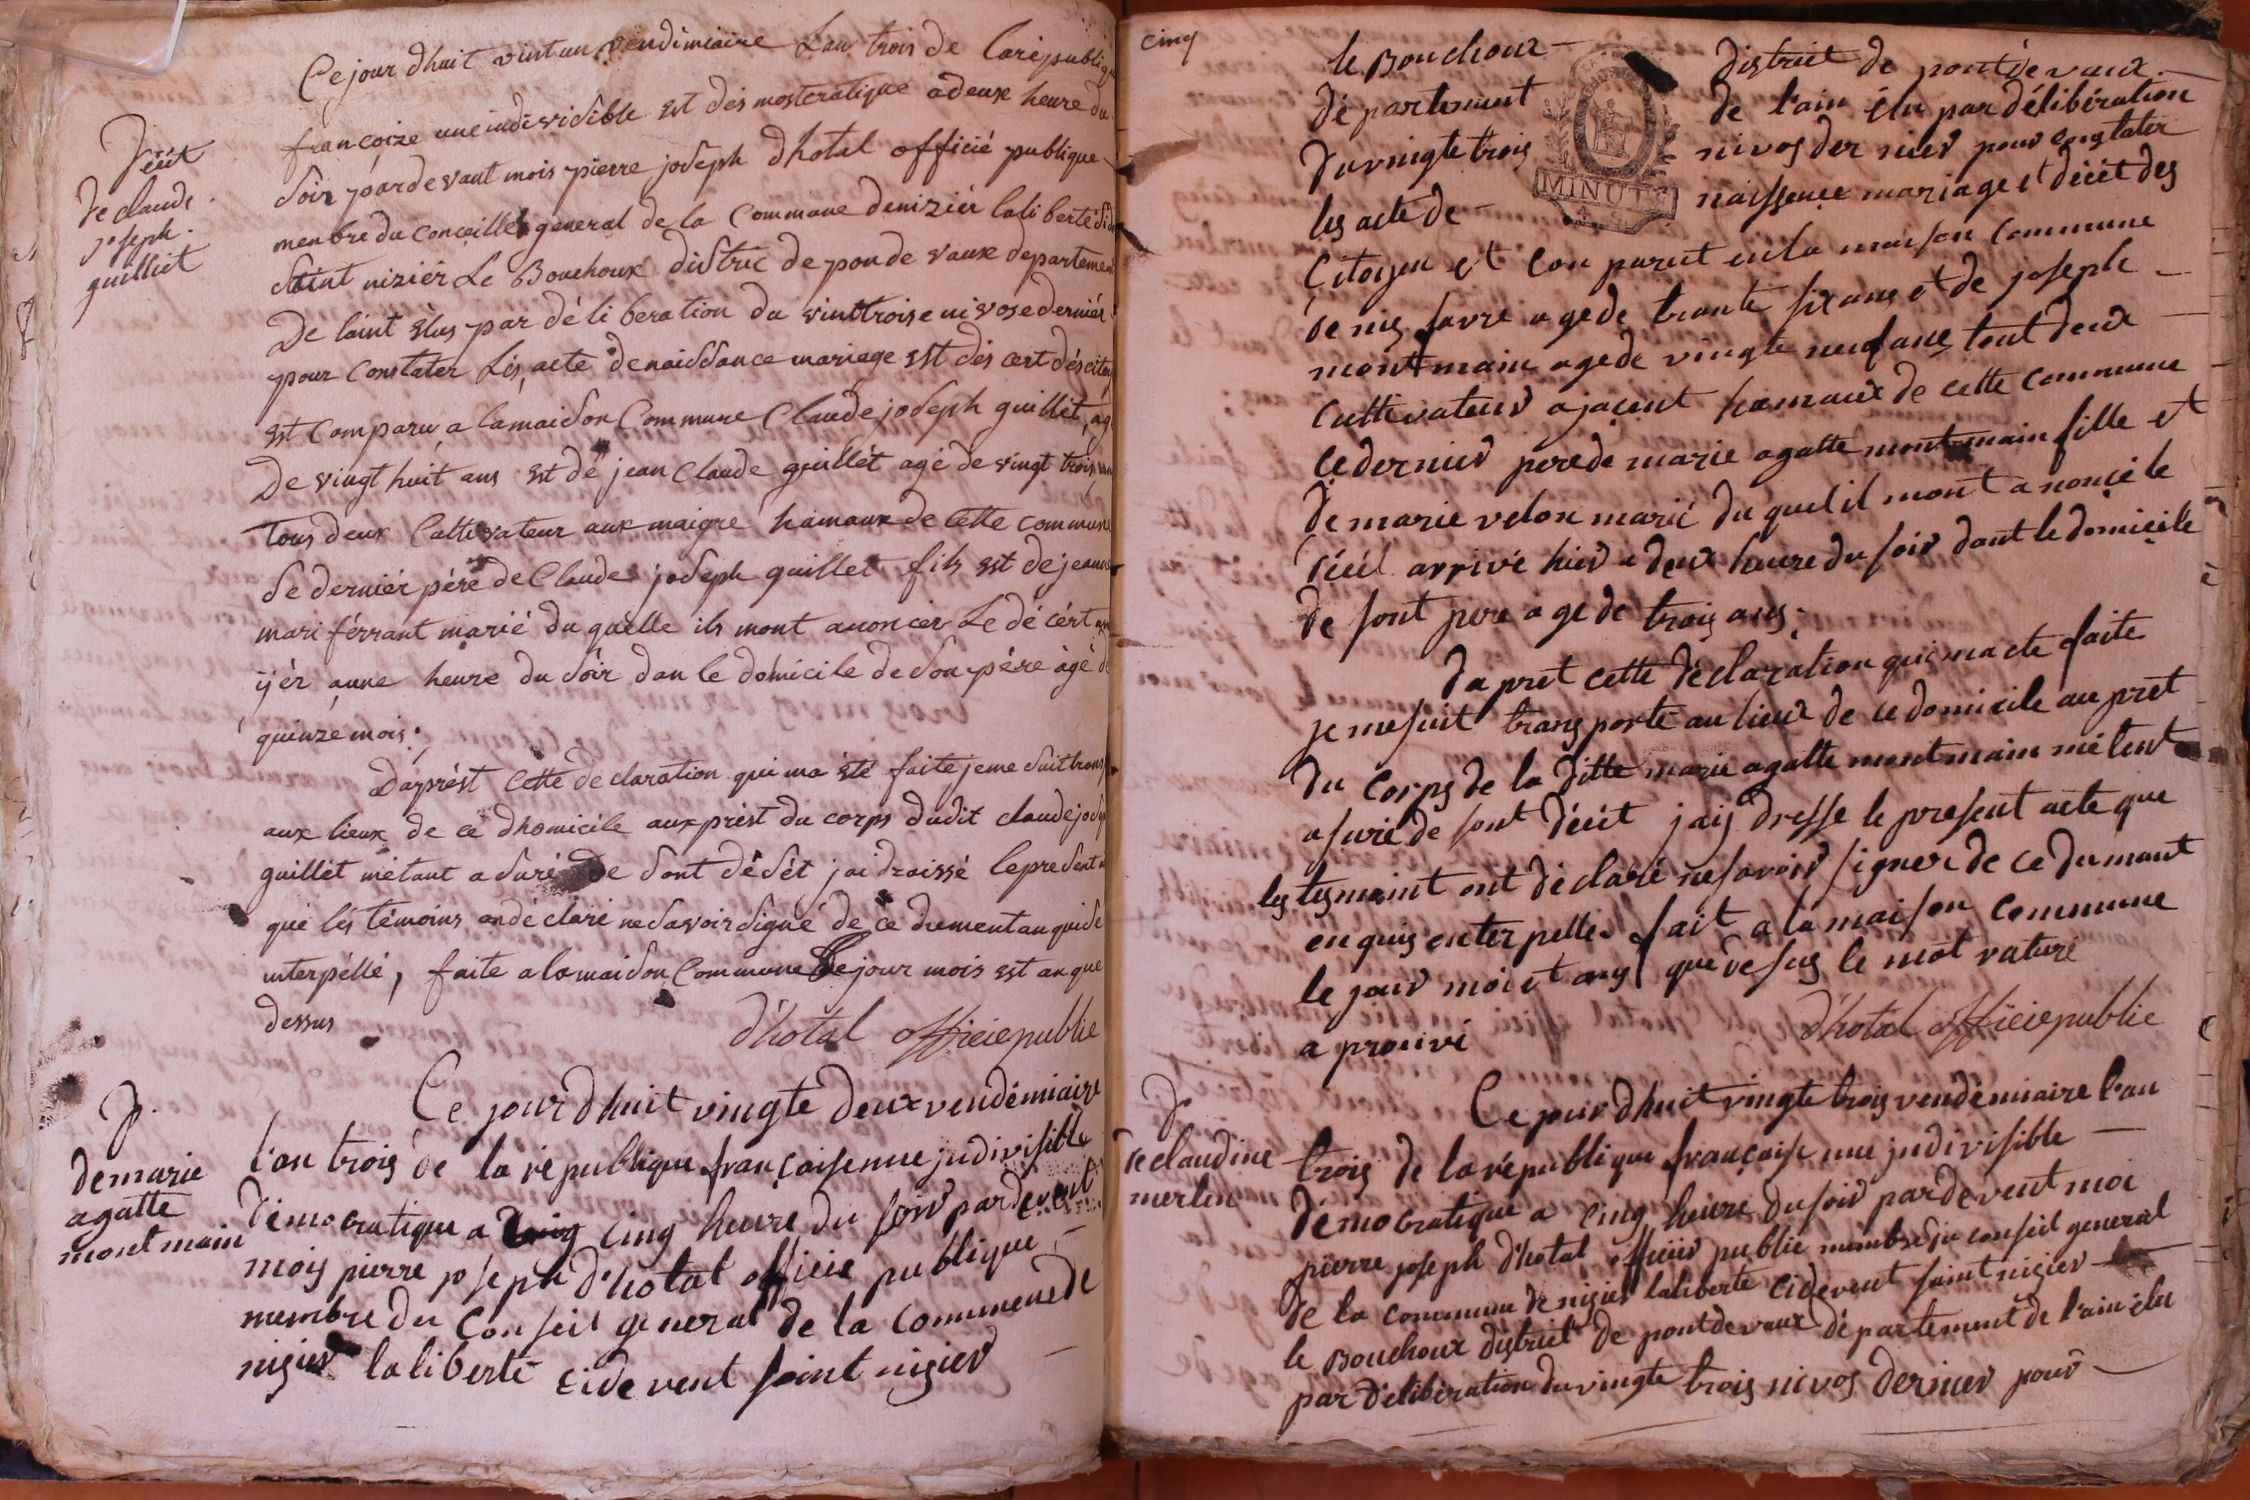 Ce jour dhuit vintun vendimiaire Lan trois de larepubliq
françoize une indivisible est des mosteratique a deux heure du
soir pardevant mois pierre joseph dhotal officié publique
menbre du Conceille general de la Commune denizier laliberté si
saint nizier Le Bouchoux distric de ponde vaux departemen
De laint elus par déliberation du vinttroise nivose dernier
pour Constater Lés acte de naissance mariage est dés cert dés cito
est Comparu a lamaison Commune Claude joseph guillét, ag
De vingt huit ans est de jean Claude guillét agé de vingt trois an
Tous deux Cultivateur aux maigre hamaux de Cette commune
se derniér pére de Claude joseph guillet fils est de jeanne
mari férrant marié du quelle ils mont anoncer Le décért
ijér aune heure du soir dan le domicile de son pére àgé de
quinze mois.
Déét
de claude
joseph
guilliet
Daprést Cette declaration qui ma été faite jeme suit trans
aux lieux de ce dhomicile aux prést du corps dudit claude jose
guillét métant asuré de sont dését jai draissé lepresent
que lés témoins on déclaré ne savoir signé de ce dument anquise
interpéllé, faite a lamaison Commune Le jour mois est an que
dessus
d'hotal officiepublic
D.
de marie
agatte
montmain
Ce jour dhuit vingte deux vendémiaire
l'an trois de la république françaiseune indivisible
démocratique a cinq heure du soir pardevent
mois pierre joseph d'hotal officié publique
membre du Conseil general de la Commenede
nizier laliberté cidevent saint nizier
cinq
le Bouchoux district de pontdevaux
département de l'ain élu par délibération
duvingte trois nivos dernier pour constater
les acte de naissence mariage et décét des
Citoyen et Con parut en la maison Commune
denis favre agede trante six ans et de joseph
montmain agede vingte neuf ans tout deux
Cultivateur ajacent hamaux de cette Commune
Ce dernier perede marie agatte montmain fille et
de marie velon marié du quel il mont anoncé le
décét arrivé hier a deux heure du soir dant le domicille
de sont pere àge de trois ans.
Da prèt cette déclaration qui ma ete faite
je mesuit transporte au lieux de ce domicile au prèt
du Corps de la ditte marie agatte montmain métent
asuré de sont décét jaij dresse le present acte que
les tesmoint ont déclaré ne savoir signer de ce dumant
enquis enterpelle. fait a la maison commune
le jour moi et ans que desus le mot raturé
a prouvé
d'hotal officiepublic
D
de claudine
merlin
Ce jour dhuit vingte trois vendémiaire l'an
trois de la république française une indivisible
démocratique a cinq heure du soir pardevent moi
pierre joseph d'hotal officier public membre du conseil general
de la commune de nizier laliberte cidevent saint nizier
le Bouchoux district de pontdevaux département de l'ain élu
par délibération du vingte trois nivos dernier pour
MINUTE